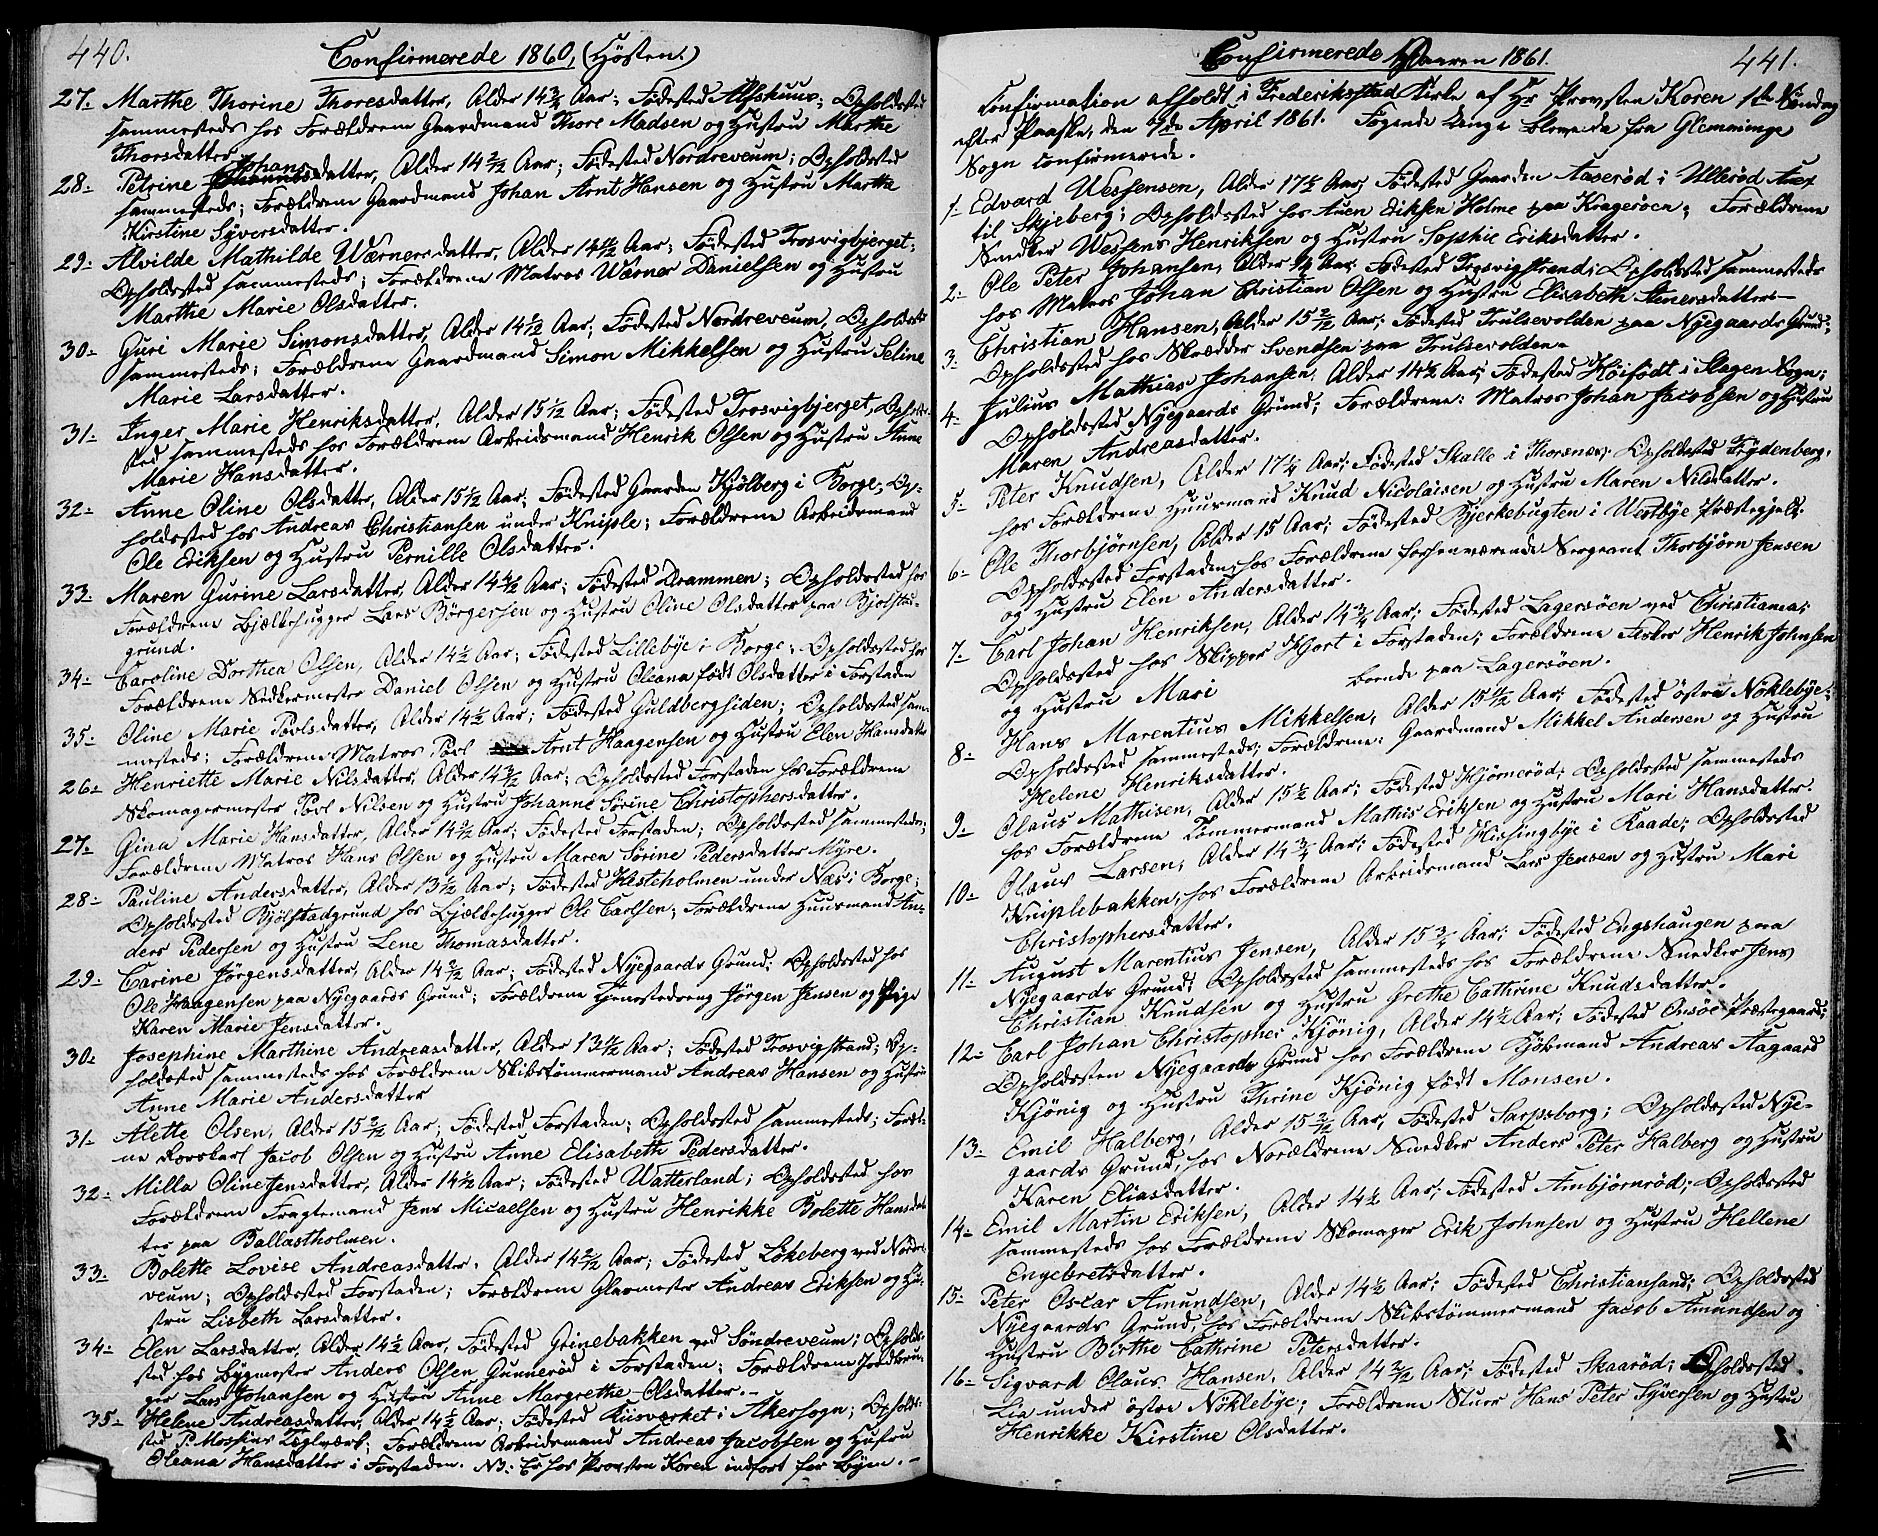 440.
Confirmerede 1860, (Høsten.)
27. Marthe Thorine Thoresdatter, Alder 14 3/4 Aar; Fødested Alfshuus; Opholdssted
sammesteds hos Forældrene Gaardmand Thore Madsen og Hustru Marthe
Thorsdatter.
28. Petrine Johansdatter, Alder 14 2/12 Aar; Fødested Nordreveum; Opholdssted
sammesteds; Forældrene Gaardmand Johan Arnt Hansen og Hustru Marthe
Kirstine Syversdatter.
29. Alvilde Mathilde Wærnersdatter, Alder 14 1/2 Aar; Fødested Trosvigbjerget;
Opholdssted sammesteds; Forældrene Matros Wærner Danielsen og Hustru
Marthe Marie Olsdatter.
30. Guri Marie Simonsdatter, Alder 14 1/2 Aar; Fødested Nordreveum, Opholdsst
sammesteds; Forældrene Gaardmand Simon Mikkelsen og Hustru Seline
Marie Larsdatter.
31. Inger Marie Henriksdatter, Alder 15 1/2 Aar; Fødested Trosvigbjerget, Opholds-
sted sammesteds hos Forældrene Arbeidsmand Henrik Olsen og Hustru Anne
Marie Hansdatter.
32. Anne Oline Olsdatter, Alder 15 1/2 Aar; Fødested Gaarden Kjølberg i Borge; Op-
holdssted hos Andreas Christiansen under Kniple; Forældrene Arbeidsmand
Ole Eriksen og Hustru Pernille Olsdatter.
33. Maren Gurine Larsdatter, Alder 14 Aar; Fødested Drammen; Opholdssted hos
Forældrene Bjelkehugger Lars Børgersen og Hustru Oline Olsdatter paa Kjølstad-
grund.
34. Caroline Dorthea Olsen, Alder 14 1/2 Aar; Fødested Lillebye i Borge; Opholdssted hos
Forældrene Snedkermester Daniel Olsen og Hustru Oleana født Olsdatter i Forstaden
35. Oline Marie Povlsdatter, Alder 14 1/2 Aar; Fødested Guldbergsiden; Opholdssted sam-
mesteds; Forældrene Matros Povl Arnt Haagensen og Hustru Elen Hansdatter
26. Henriette Marie Nilsdatter, Alder 14 3/12 Aar; Opholdssted Forstaden hos Forældrene
Skomagermester Povl Nilsen og Hustru Johanne Sirine Christophersdatter.
27. Gina Marie Hansdatter, Alder 14 Aar; Fødested Forstaden; Opholdssted sammesteds;
Forældrene Matros Hans Olsen og Hustru Maren Sørine Pedersdatter Myre.
28. Pauline Andersdatter, Alder 13 1/2 Aar; Fødested Hesteholmen under Næs i Borge;
Opholdssted Kjølstadgrund hos Bjelkehugger Ole Carlsen; Forældrene Huusmand An-
ders Pedersen og Hustru Lene Thomasdatter.
29. Carine Jørgensdatter, Alder 14 2/12 Aar; Fødested Nyegaards Grund; Opholdssted hos
Ole Haagensen paa Nyegaards Grund; Forældrene Tjenestedreng Jørgen Jensen og Pige
Karen Marie Jensdatter.
30. Josephine Marthine Andreasdatter, Alder 13 Aar; Fødested Trosvigstrand; Op-
holdssted sammesteds hos Forældrene Skibstømmermand Andreas Hansen og Hustru
Anne Marie Andersdatter
31. Alette Olsen, Alder 15 2/12 Aar; Fødested Forstaden; Opholdssted sammesteds; Foræl-
ne Rorskarl Jacob Olsen og Hustru Anne Elisabeth Pedersdatter.
32. Milla Oline Jensdatter, Alder 14 1/2 Aar; Fødested Watterland; Opholdssted hos
Forældrene Fragtemand Jens Micaelsen og Hustru Henrikke Bolette Hansdat-
ter paa Ballastholmen.
33. Bolette Lovise Andreasdatter, Alder 14 2/12 Aar; Fødested Løkeberg ved Nordre-
veum; Opholdssted Forstaden; Forældrene Glarmester Andreas Eriksen og Hu-
stru Lisbeth Larsdatter.
34. Elen Larsdatter, Alder 14 1/2 Aar, Fødested Grinebakken ved Søndreveum; Opholds-
sted hos Bygmester Anders Olsen Gunnerød i Forstaden; Forældrene Jordbru-
ger Lars Johansen og Hustru Anne Margrethe Olsdatter.
35. Helene Andreasdatter, Alder 14 1/2 Aar; Fødested Kiisværket i Akersogn; Opholds-
sted P. Mossins Teglværk; Forældrene Arbeidsmand Andreas Jacobsen og Hustru
Oleana Hansdatter i Forstaden. NB: Er hos Provsten Koren indført for Byen.
Confirmerede Vaaren 1861.
441.
Confirmation afholdt i Frederikstad Kirke af Hr Provsten Koren 1ste Søndag
efter Paaske, den 7de April 1861. Følgende Unge bleve da fra Glemminge
Sogn confirmerede.
1. Edvard Wessensen, Alder 17 1/2 Aar; Fødested Gaarden Aaserød i Ullerød Anex
til Skjeberg; Opholdssted hos Auen Eriksen Holme paa Kragerøen; Forældrene
Snedker Wessens Henriksen og Hustru Sophie Eriksdatter.
2. Ole Peter Johansen, Alder Aar, Fødested Trosvigstrand; Opholdssted sammesteds
hos Matros Johan Christian Olsen og Hustru Elisabeth Stenersdatter.
3. Christian Hansen, Alder 15 2/12 Aar; Fødested Trulsevolden paa Nyegaards Grund;
Opholdssted hos Skrædder Svendsen paa Trulsevolden.
4. Julius Mathias Johansen, Alder 14 1/2 Aar; Fødested Høifødt i Slagen Sogn;
Opholdssted Nyegaards Grund; Forældrene: Matros Johan Jacobsen og Hustru
Maren Andreasdatter.
5. Peter Knudsen, Alder 17 1/4 Aar; Fødested Skalle i Thorsnes; Opholdssted Frydenberg,
hos Forældrene Huusmand Knud Nicolaisen og Hustru Maren Nilsdatter.
6. Ole Thorbjørnsen, Alder 15 Aar; Fødested Bjerkebugten i Westbye Præstegjeld;
Opholdssted Forstaden hos Forældrene forhenværende Sergeant Thorbjørn Jensen
og Hustru Elen Andersdatter.
7. Carl Johan Henriksen, Alder 14 3/4 Aar; Fødested Lagersøen ved Christiania;
Opholdssted hos Skipper Hjort i Forstaden; Forældrene Fisker Henrik Johnsen
og Hustru Mari boende paa Lagersøen.
8. Hans Marentius Mikkelsen, Alder 15 1/2 Aar; Fødested østre Nøklebye;
Opholdssted sammesteds; Forældrene: Gaardmand Mikkel Andersen og Hustru
Helene Henriksdatter.
9. Olaus Mathisen, Alder 15 1/2 Aar; Fødested Kjørnerød; Opholdssted sammesteds
hos Forældrene Tømmermand Mathis Eriksen og Hustru Mari Hansdatter.
10. Olaus Larsen, Alder 14 3/4 Aar; Fødested Hissingbye i Raade; Opholdssted
Kniplebakken, hos Forældrene Arbeidsmand Lars Jensen og Hustru Mari
Christophersdatter.
11. August Marentius Jensen, Alder 15 3/4 Aar; Fødested Engshaugen paa
Nyegaards Grund; Opholdssted sammesteds hos Forældrene Snedker Jens
Christian Knudsen og Hustru Grethe Cathrine Knudsdatter.
12. Carl Johan Christopher Kjønig, Alder 14 1/2 Aar; Fødested Onsøe Præstegaard;
Opholdssten Nyegaards Grund hos Forældrene Kjøbmand Andreas Aagaard
Kjønig og Hustru Thrine Kjønig født Monsen.
13. Emil Halberg, Alder 15 2/12 Aar, Fødested Sarpsborg; Opholdssted Nye-
gaards Grund, hos Forældrene Snedker Anders Peter Halberg og Hustru
Karen Eliasdatter.
14. Emil Martin Eriksen, Alder 14 1/2 Aar; Fødested Ambjørnrød; Opholdssted
sammesteds hos Forældrene Skomager Erik Johnsen og Hustru Hellene
Engebretsdatter.
15. Peter Oscar Amundsen, Alder 14 1/2 Aar; Fødested Christiansand; Opholdssted
Nyegaards Grund, hos Forældrene Skibstømmermand Jacob Amundsen og
Hustru Birthe Cathrine Petersdatter.
16. Sigvard Olaus Hansen, Alder 14 2/12 Aar; Fødested Skaarød; Opholdssted
Lia under østre Nøklebye; Forældrene Sluer Hans Peter Syversen og Hustru
Henrikke Kirstine Olsdatter.